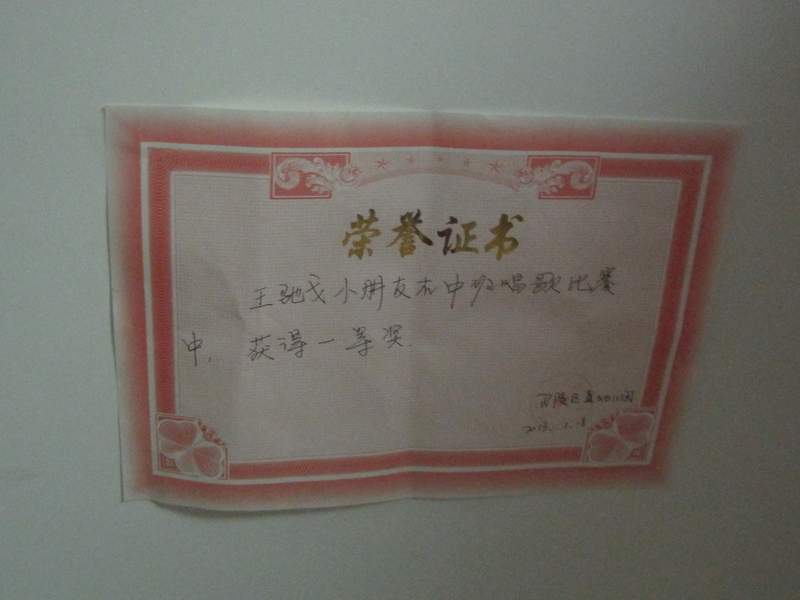 荣誉证书
王驰戈小朋友在中班唱歌比赛
中，获得一等奖
幼儿园